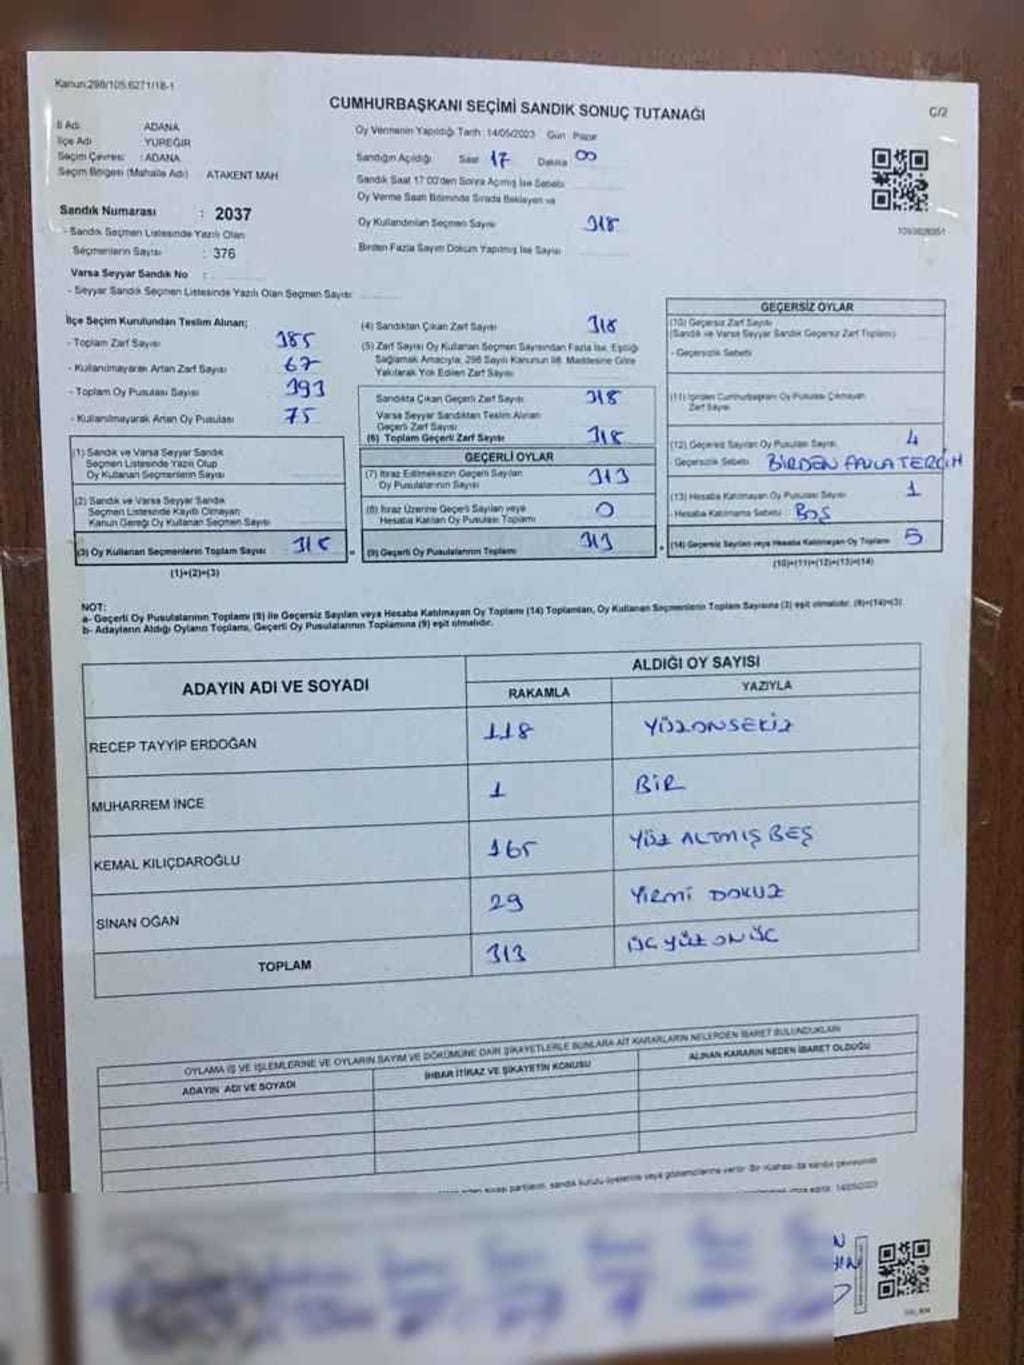 Kanun:298/105.6271/18-1
CUMHURBAŞKANI SEÇİMİ SANDIK SONUÇ TUTANAĞI
C/2
İl Adı ADANA
İlçe Adı YÜREĞİR
Seçim Çevresi : ADANA
Seçim Bölgesi (Mahalle Adı) ATAKENT MAH
Sandık Numarası : 2037
- Sandık Seçmen Listesinde Yazılı Olan
Seçmenlerin Sayısı : 376
Varsa Seyyar Sandık No :
- Seyyar Sandık Seçmen Listesinde Yazılı Olan Seçmen Sayısı:
Oy Vermenin Yapıldığı Tarih : 14/05/2023 Gün Pazar
Sandığın Açıldığı Saat 17 Dakika 00
Sandık Saat 17:00'den Sonra Açılmış İse Sebebi
Oy Verme Saati Bitiminde Sırada Bekleyen ve
Oy Kullandırılan Seçmen Sayısı 318
Birden Fazla Sayım Döküm Yapılmış İse Sayısı
İlçe Seçim Kurulundan Teslim Alınan;
- Toplam Zarf Sayısı 385
- Kullanılmayarak Artan Zarf Sayısı 67
- Toplam Oy Pusulası Sayısı 393
- Kullanılmayarak Artan Oy Pusulası 75
(1) Sandık ve Varsa Seyyar Sandık
Seçmen Listesinde Yazılı Olup
Oy Kullanan Seçmenlerin Sayısı
(2) Sandık ve Varsa Seyyar Sandık
Seçmen Listesinde Kayıtlı Olmayan
Kanun Gereği Oy Kullanan Seçmen Sayısı
(3) Oy Kullanan Seçmenlerin Toplam Sayısı 318 =
(1)+(2)=(3)
(4) Sandıktan Çıkan Zarf Sayısı 318
(5) Zarf Sayısı Oy Kullanan Seçmen Sayısından Fazla İse, Eşitliği
Sağlamak Amacıyla; 298 Sayılı Kanunun 98. Maddesine Göre
Yakılarak Yok Edilen Zarf Sayısı
Sandıkta Çıkan Geçerli Zarf Sayısı 318
Varsa Seyyar Sandıktan Teslim Alınan
Geçerli Zarf Sayısı
(6) Toplam Geçerli Zarf Sayısı 318
GEÇERLİ OYLAR
(7) İtiraz Edilmeksizin Geçerli Sayılan
Oy Pusulalarının Sayısı 313
(8) İtiraz Üzerine Geçerli Sayılan veya
Hesaba Katılan Oy Pusulası Toplamı 0
(9) Geçerli Oy Pusulalarının Toplamı 313 +
GEÇERSİZ OYLAR
(10) Geçersiz Zarf Sayısı
(Sandık ve Varsa Seyyar Sandık Geçersiz Zarf Toplamı)
- Geçersizlik Sebebi
(11) İçinden Cumhurbaşkanı Oy Pusulası Çıkmayan
Zarf Sayısı
(12) Geçersiz Sayılan Oy Pusulası Sayısı 4
Geçersizlik Sebebi BİRDEN FAZLA TERCİH
(13) Hesaba Katılmayan Oy Pusulası Sayısı 1
- Hesaba Katılmama Sebebi BOŞ
(14) Geçersiz Sayılan veya Hesaba Katılmayan Oy Toplamı 5
(10)+(11)+(12)+(13)=(14)
NOT:
a- Geçerli Oy Pusulalarının Toplamı (9) ile Geçersiz Sayılan veya Hesaba Katılmayan Oy Toplamı (14) Toplamları, Oy Kullanan Seçmenlerin Toplam Sayısına (3) eşit olmalıdır. (9)+(14)=(3)
b- Adayların Aldığı Oyların Toplamı, Geçerli Oy Pusulalarının Toplamına (9) eşit olmalıdır.
ADAYIN ADI VE SOYADI ALDIĞI OY SAYISI
RAKAMLA YAZIYLA
RECEP TAYYİP ERDOĞAN 118 YÜZONSEKİZ
MUHARREM İNCE 1 BİR
KEMAL KILIÇDAROĞLU 165 YÜZ ALTMIŞ BEŞ
SİNAN OĞAN 29 YİRMİ DOKUZ
TOPLAM 313 ÜÇ YÜZ ON ÜÇ
OYLAMA İŞ VE İŞLEMLERİNE VE OYLARIN SAYIM VE DÖKÜMÜNE DAİR ŞİKAYETLERLE BUNLARA AİT KARARLARIN NELERDEN İBARET BULUNDUKLARI
ADAYIN ADI VE SOYADI İHBAR İTİRAZ VE ŞİKAYETİN KONUSU ALINAN KARARIN NEDEN İBARET OLDUĞU
siyasi partilerin, sandık kurulu üyelerine veya gözlemcilerine verilir. Bir nüshası da sandık çevresinde
14/05/2023